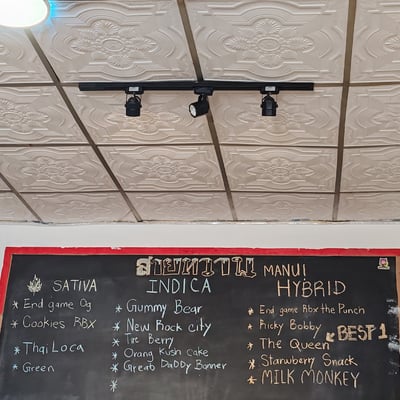 สายหวาน MANUI
SATIVA
* End game Og
* Cookies RBX
* Thai Loca
* Green
INDICA
* Gummy Bear
* New Rock city
* Tre Berry
* Orang Kush cake
* Great Daddy Banner
*
HYBRID
* End game Rbx the Punch
* Ricky Bobby
* The Queen
BEST 1
* Stanwberry Snack
* MILK MONKEY